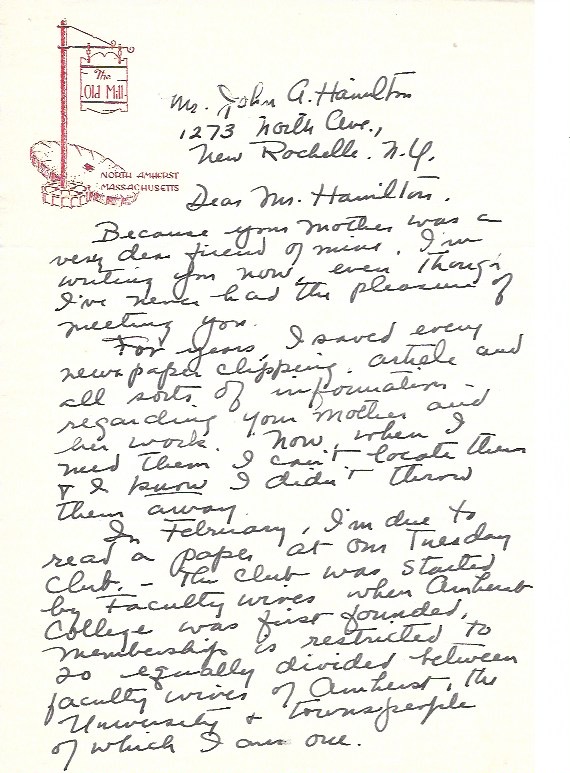 The
Old Mill
NORTH AMHERST
MASSACHUSETTS
Mr. John A. Hamilton
1273 North Ave.,
New Rochelle. N.Y.
Dear Mr. Hamilton.
Because your mother was a
very dear friend of mine. I'm
writing you now, even though
I've never had the pleasure of
meeting you.
For years, I saved every
newspaper clipping. article and
all sorts of information -
regarding your mother and
her work. Now, when I
need them I can't locate them
& I know I didn't throw
them away.
In February, I'm due to
read a paper at our Tuesday
Club. - The club was started
by Faculty wives when Amherst
College was first founded.
Membership is restricted to
20 equally divided between
faculty wives of Amherst, the
University & townspeople
of which I am one.